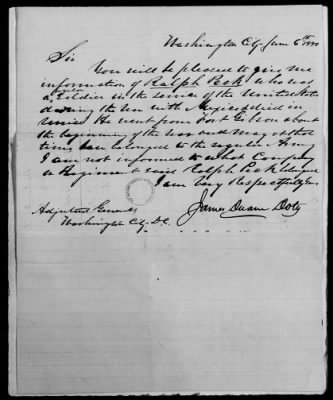 Washington City June 6th 1850
Sir
You will be pleased to give me
information of Ralph Peck who was
a Soldier in the service of the United States
during the War with Mexico & died in
service. He went from Fort G. about
the beginning of the War and may at that
time have belonged to the regular Army
I am not informed to what Company
or Regiment said Ralph Peck belonged
I am Very Respectfully
James Duane Doty
Adjutant General
Washington City D.C.